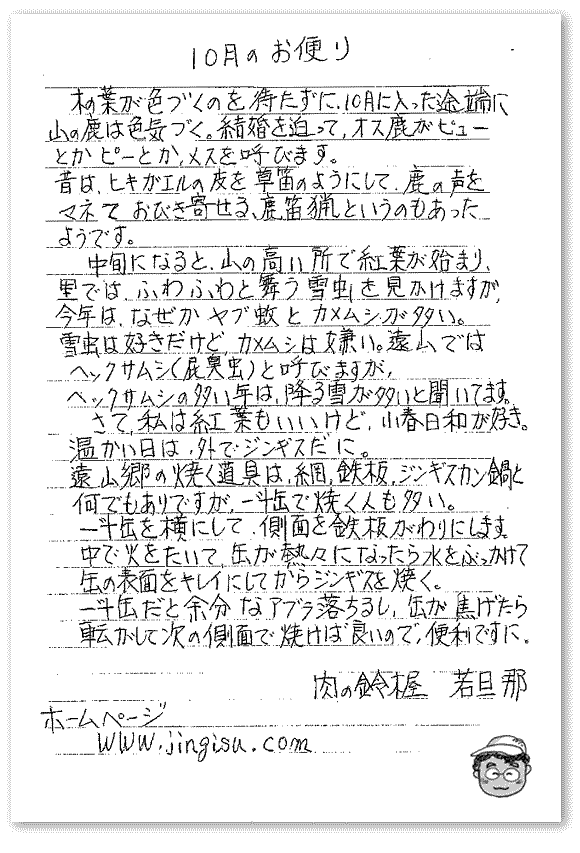 10月のお便り
木の葉が色づくのを待たずに、10月に入った途端に
山の鹿は色気づく。結婚を迫って、オス鹿がビュー
とかピーとか、メスを呼びます。
昔は、ヒキガエルの皮を草笛のようにして、鹿の声を
マネておびき寄せる、鹿笛猟というのもあった
ようです。
中旬になると、山の高い所で紅葉が始まり、
里では、ふわふわと舞う雪虫を見かけますが、
今年は、なぜかヤブ蚊とカメムシが多い。
雪虫は好きだけど、カメムシは嫌い。遠山では
ヘックサムシ(屁臭虫)と呼びますが、
ヘックサムシの多い年は、降る雪が多いと聞いてます。
さて、私は紅葉もいいけど、小春日和が好き。
温かい日は、外でジンギスだに。
遠山郷の焼く道具は、網、鉄板、ジンギスカン鍋と
何でもありですが、一斗缶で焼く人も多い。
一斗缶を横にして、側面を鉄板がわりにします。
中で火をたいて、缶が熱々になったら水をぶっかけて
缶の表面をキレイにしてからジンギスを焼く。
一斗缶だと余分なアブラ落ちるし、缶が焦げたら
転がして次の側面で焼けば良いので、便利ですに。
肉の鈴木屋 若旦那
ホームページ
WWW.jingisu.com